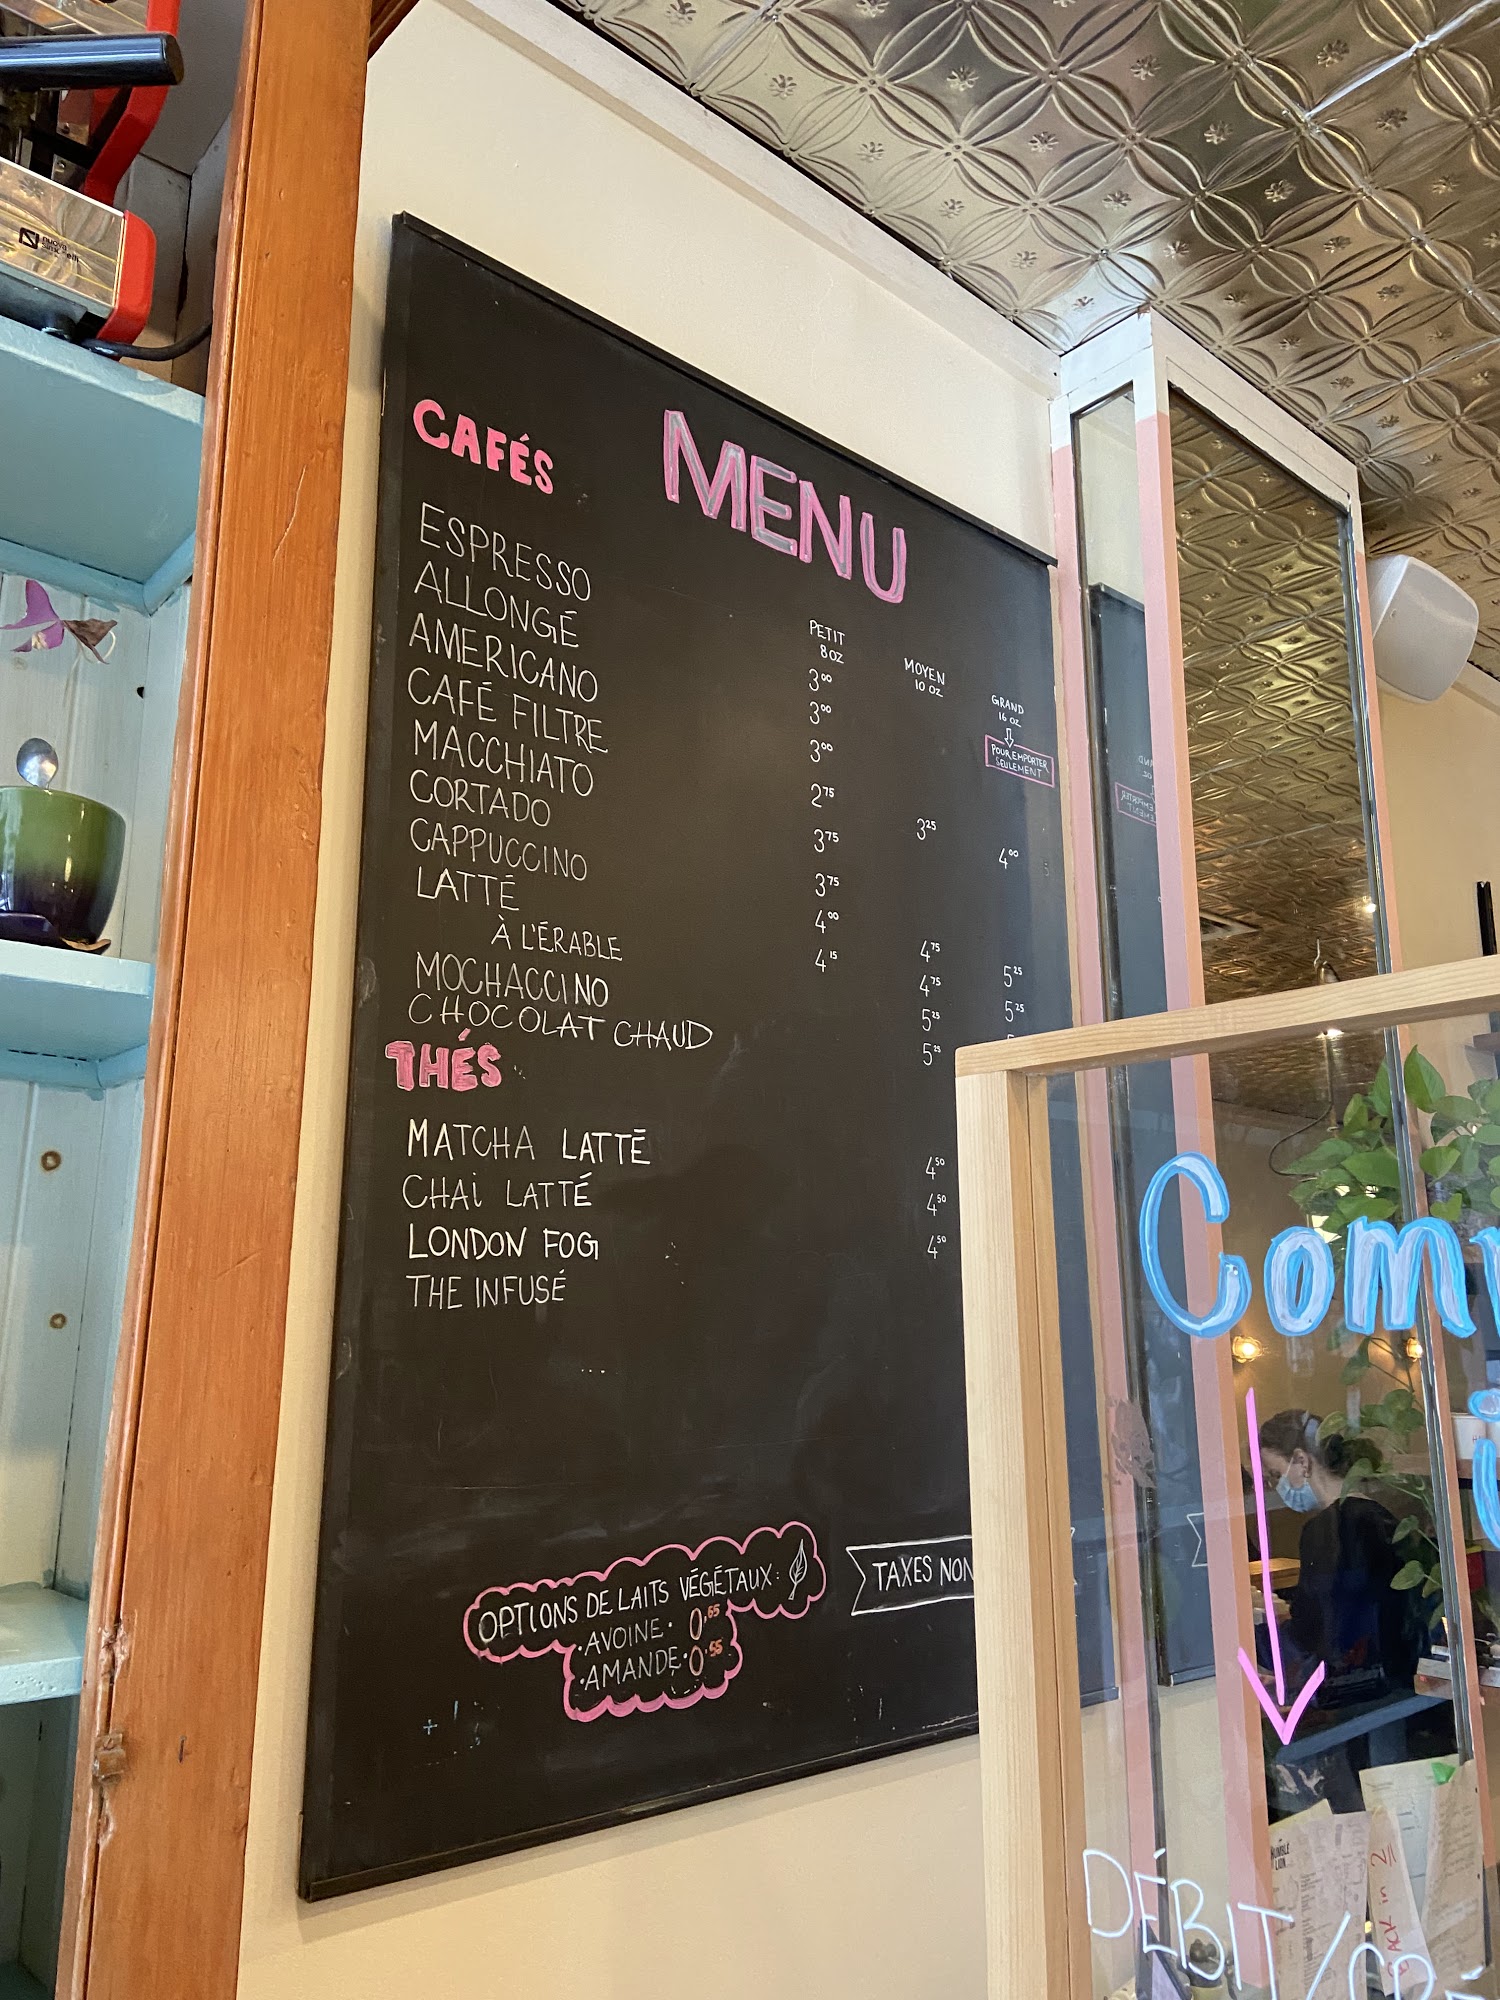 MENU
CAFÉS
PETIT
8 OZ
MOYEN
10 OZ
GRAND
16 OZ
POUR EMPORTER
SEULEMENT
ESPRESSO 3⁰⁰
ALLONGÉ 3⁰⁰
AMERICANO 3⁰⁰
CAFÉ FILTRE 2⁷⁵ 3²⁵ 4⁰⁰
MACCHIATO 3⁷⁵
CORTADO 3⁷⁵
CAPPUCCINO 4⁰⁰ 4⁷⁵ 5²⁵
LATTÉ 4¹⁵ 4⁷⁵ 5²⁵
À L'ÉRABLE
MOCHACCINO 5²⁵
CHOCOLAT CHAUD 5²⁵
THÉS
MATCHA LATTÉ 4⁵⁰
CHAi LATTÉ 4⁵⁰
LONDON FOG 4⁵⁰
THE INFUSÉ
OPTIONS DE LAITS VÉGÉTAUX:
• AVOINE • 0.⁶⁵
• AMANDE • 0.⁵⁵
TAXES NON
Com
DÉBIT/CRÉ